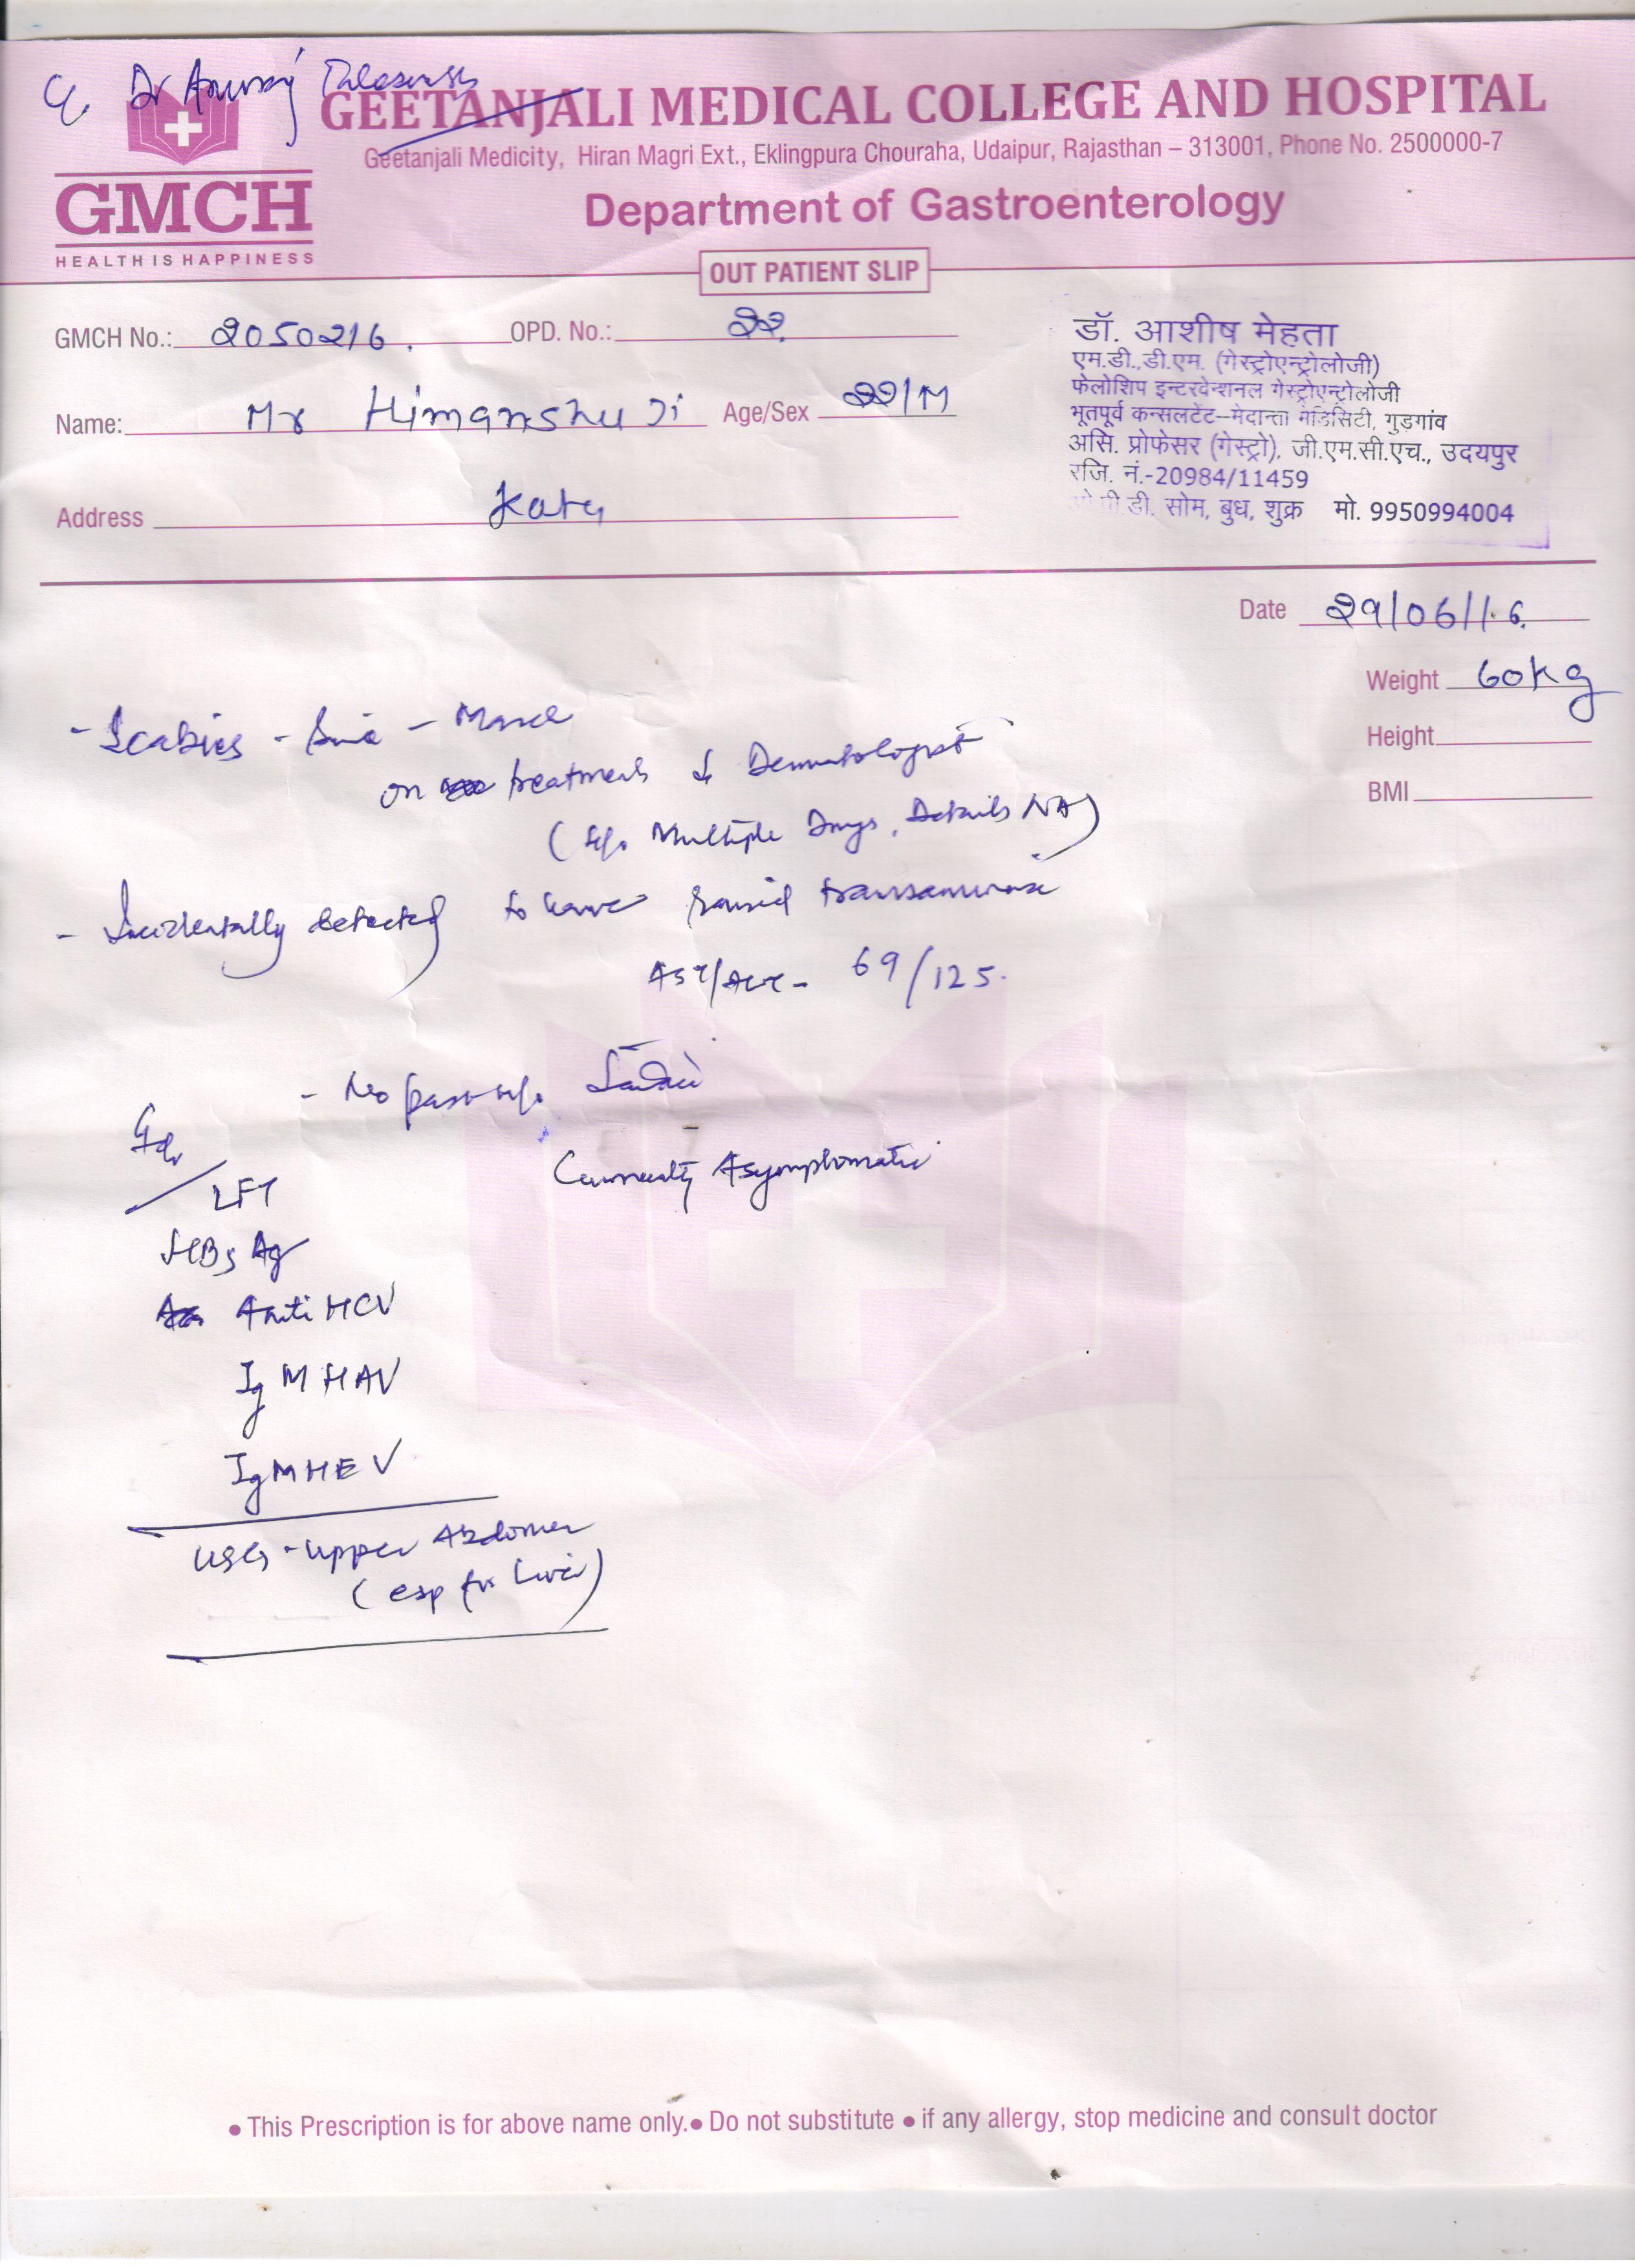 C/ Dr Anurag
GEETANJALI MEDICAL COLLEGE AND HOSPITAL
Geetanjali Medicity, Hiran Magri Ext., Eklingpura Chouraha, Udaipur, Rajasthan – 313001, Phone No. 2500000-7
GMCH
HEALTH IS HAPPINESS
Department of Gastroenterology
OUT PATIENT SLIP
GMCH No.: 2050216. OPD. No.: 22.
Name: Mr Himanshu Ji Age/Sex 22/M
Address
डॉ. आशीष मेहता
एम.डी.,डी.एम. (गेस्ट्रोएन्ट्रोलोजी)
फेलोशिप इन्टरवेन्शनल गेस्ट्रोएन्ट्रोलोजी
भूतपूर्व कन्सलटेंट-मेदान्ता मेडिसिटी, गुड़गांव
असि. प्रोफेसर (गेस्ट्रो), जी.एम.सी.एच., उदयपुर
रजि. नं.-20984/11459
ओ.पी.डी. सोम, बुध, शुक्र मो. 9950994004
Date 29/06/16.
Weight 60kg
Height
BMI
- Scabies - Since - March
on treatment Dermatologist
(H/o Multiple Drugs, Details NA)
- Incidentally detected to have raised transaminase
AST/ALT - 69/125.
- No past H/o Jaundice
Currently Asymptomatic
Adv
LFT
HBsAg
Anti HCV
IgM HAV
IgM HEV
USG - Upper Abdomen
(esp for Liver)
• This Prescription is for above name only. • Do not substitute • if any allergy, stop medicine and consult doctor